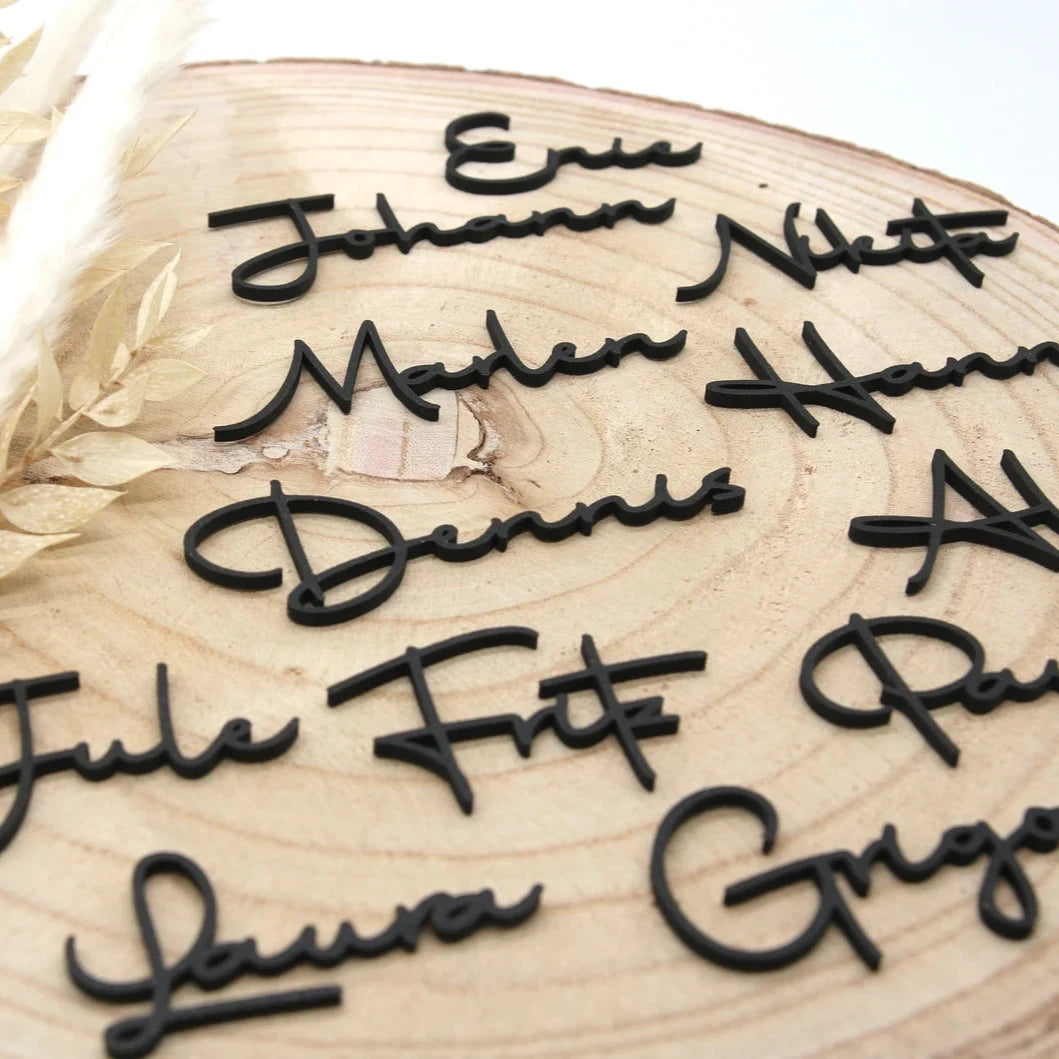 Eric
Johann Nikita
Marlen Hann
Dennis A
Jule Fritz Pau
Laura Grigo